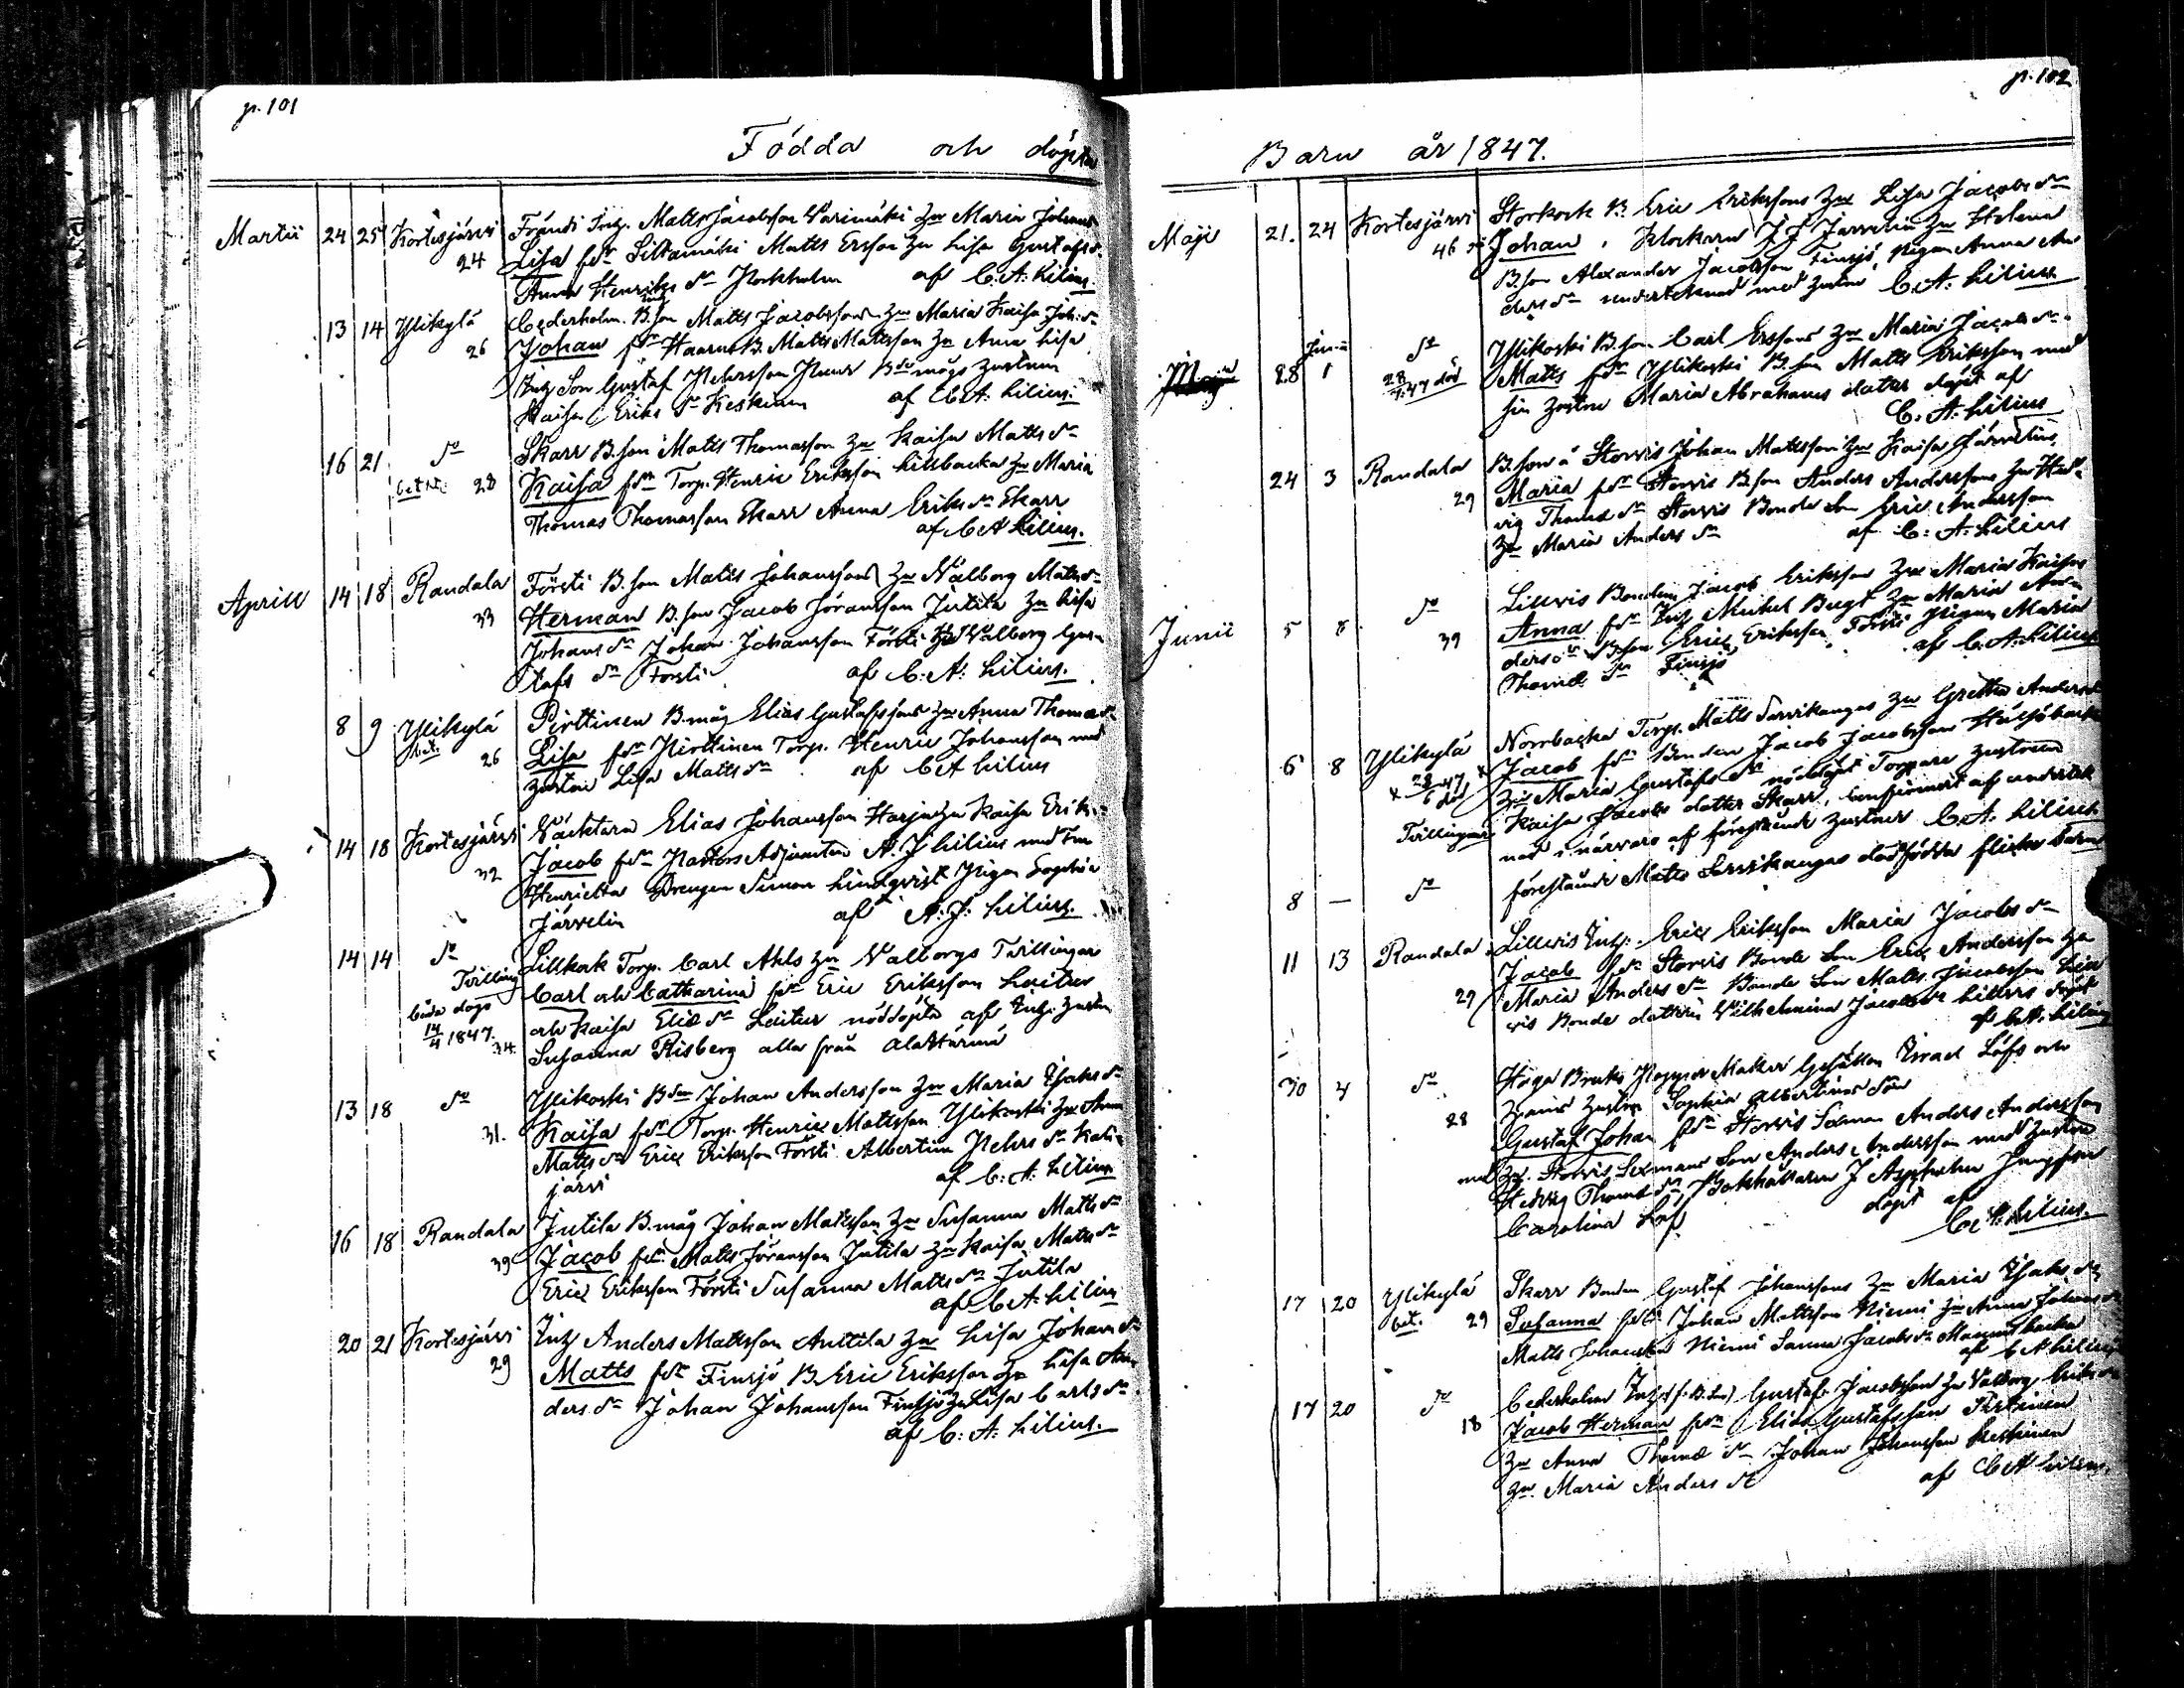 p. 101
Födda och döpta
Martii 24 25 Kortesjärvi Förändi Inh. Matts Jacobsson Warimäki hu Maria Johans
24 Lisa fdr Siltamäki Matts Ersson hu Lisa Gustafs d.
Anna Henriks dr Stockholm af C. A. Lilius.
13 14 Ylikylä Cederholm B. son Matts Jacobssons hu Maria Kaisa Joh. dr
26 Johan fdr Haarus B. Matts Mattsson hu Anna Lisa
Inh Son Gustaf Pehrsson
Kaisa Eriks dr Keskinen af C. A. Lilius.
16 21 do Skarr B. son Matts Thomasson hu Kaisa Matts dr
28 Kaisa fdr Torp. Henric Eriksson Lillbacka hu Maria
Thomas Thomasson Skarr Anna Eriks dr Skarr
af C A Lilius.
Aprill 14 18 Randala Försti B. son Matts Johanssons hu Walborg Matts dr
33 Herman B. son Jacob Jöransson Jutila hu Lisa
Johans dr Johan Johansson Försti hu Walborg Gus-
tafs dr Försti af C. A. Lilius.
8 9 Ylikylä Pirttinen B. måg Elias Gustafssons hu Anna Thomæ dr
26 Lisa fdr Pirttinen Torp. Henric Johansson med
hustru Lisa Matts dr af C A Lilius
14 18 Kortesjärvi Väktare Elias Johansson Harju hu Kaisa Eriks dr
32 Jacob fdr Pastors Adjuncten A. J Lilius med Fru
Henrietta Drengen Simon Lindqvist Pigan Sophia
Järvelin af A. J. Lilius.
14 14 do Lillkok Torp. Carl Ahls hu Walborgs Tvillingar
Tvilling Carl och Catharina fdr Eric Eriksson Leitus
båda dogo och Kaisa Eliæ dr Leitus nöddöpte af Inh. hustru
14/4 1847. 34. Susanna Risberg alla från Alahärmä
13 18 do Ylikoski B son Johan Andersson hu Maria Isaks dr
31. Kaisa fdr Torp. Henric Mattsson Ylikoski hu Anna
Matts dr Eric Eriksson Försti Albertina Pehrs dr Kati-
järvi af C. A. Lilius
16 18 Randala Jutila B. måg Johan Mattsson hu Susanna Matts dr
39 Jacob fdr Matts Jöransson Jutila hu Kaisa Matts dr
Eric Eriksson Försti Susanna Matts dr Jutila
af C A. Lilius
20 21 Kortesjärvi Inh Anders Mattsson Anttila hu Lisa Johans dr
29 Matts fdr Finsjö B. Eric Eriksson hu Lisa An-
ders dr Johan Johansson Finsjö hu Lisa Carls dr
af C. A. Lilius.
p. 102
Barn år 1847.
Maji 21. 24 Kortesjärvi Storkock B. Eric Erikssons hu Lisa Jacobs dr
46 Johan, Klockaren J J Jarvelin hu Helena
B. son Alexander Jacobsson Finsjö, Pigan Anna An-
ders dr undertecknad med hustru C. A. Lilius
Junii
28 1 do Ylikoski B. son Carl Erssons hu Maria Jacobs dr.
död Matts fdr Ylikoski B. son Matts Eriksson med
sin hustru Maria Abrahams dotter döpt af
C. A. Lilius
24 3 Randala B. son å Storvis Johan Mattsson hu Kaisa Järvelins
29 Maria fdr Storvis B. son Anders Anderssons hu Hed-
vig Thomæ dr Storvis Bonde Son Eric Andersson
hu Maria Anders dr af C: A: Lilius
Junii 5 8 do Lillvis Bonden Jacob Eriksson hu Maria Kaisas
39 Anna fdr Inh Michel Bugt hu Maria An-
ders dr B. son Eric Eriksson Försti Pigan Maria
Thomæ dr Finsjö af C. A. Lilius
6 8 Ylikylä Norrbacka Torp. Matts Sarvikangas hu Gretha Anders d
Jacob fdr Bonden Jacob Jacobsson
död hu Maria Gustafs dr nöddöpt Torpare hustrun
Tvillingar Kaisa Jacobs dotter Skarr, confirmert af underteck
nad i närvaro af förestående hustrur C. A. Lilius
8 — do förestående Matts Sarvikangas dödfödda flicko barn
11 13 Randala Lillvis Inh. Eric Eriksson Maria Jacobs dr
29 Jacob fdr Storvis Bonde Son Eric Andersson hu
Maria Anders dr Bonde Son Matts Jacobsson
vis Bonde dottren Wilhelmina Jacobs dr Lillvis döpt
af C. A. Lilius
30 4 do Höga Bruks Israel Löfs och
hans hustru Sophia Albertinas Son
28 Gustaf Johan fdr Storvis Sexman Anders Andersson
med hu. Storvis Sexmans Son Anders Andersson med hustru
Hedvig Thomæ dr Bokhållaren J Aspholm Jungfrun
Carolina Löf. döpt af
C: A: Lilius.
17 20 Ylikylä Skarr Bonden Gustaf Johanssons hu Maria Isaks dr
29 Susanna fdr Johan Mattsson Niemi hu Anna Johans dr
Matts Johansson Niemi Sanna Jacobs dr Mannisbacka
af C A Lilius
17 20 do Cederholm Inh (f. B. son) Gustaf Jacobsson hu Walborg Eriks dr
18 Jacob Herman fdr Elias Gustafsson Pirttinen
hu Anna Thomæ dr Johan Johansson Keskinen
hu. Maria Anders dr af C A Lilius.